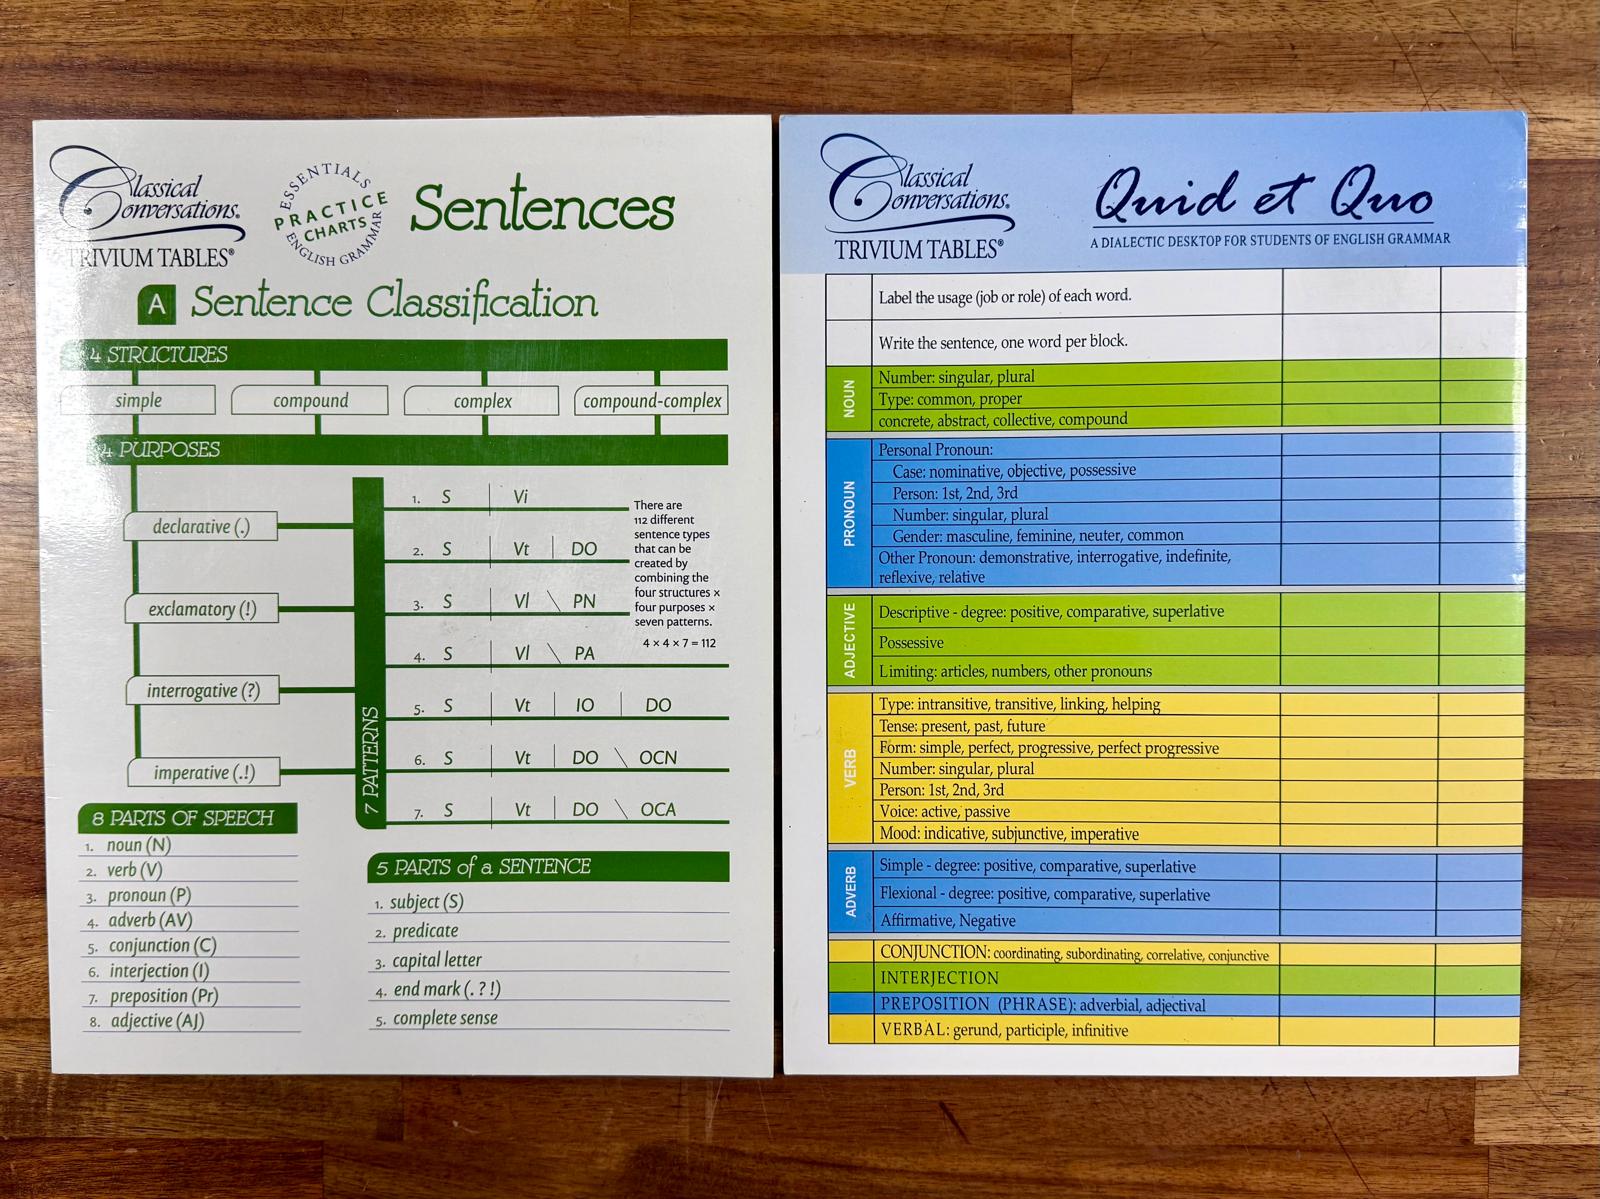 Classical
Conversations®
TRIVIUM TABLES®
ESSENTIALS
PRACTICE
CHARTS
ENGLISH GRAMMAR
Sentences
A Sentence Classification
4 STRUCTURES
simple compound complex compound-complex
4 PURPOSES
declarative (.)
exclamatory (!)
interrogative (?)
imperative (.!)
7 PATTERNS
1. S Vi
2. S Vt DO
3. S Vl \ PN
4. S Vl \ PA
5. S Vt IO DO
6. S Vt DO \ OCN
7. S Vt DO \ OCA
There are
112 different
sentence types
that can be
created by
combining the
four structures ×
four purposes ×
seven patterns.
4 × 4 × 7 = 112
8 PARTS OF SPEECH
1. noun (N)
2. verb (V)
3. pronoun (P)
4. adverb (AV)
5. conjunction (C)
6. interjection (I)
7. preposition (Pr)
8. adjective (AJ)
5 PARTS of a SENTENCE
1. subject (S)
2. predicate
3. capital letter
4. end mark (. ? !)
5. complete sense
Classical
Conversations®
TRIVIUM TABLES®
Quid et Quo
A DIALECTIC DESKTOP FOR STUDENTS OF ENGLISH GRAMMAR
Label the usage (job or role) of each word.
Write the sentence, one word per block.
NOUN
Number: singular, plural
Type: common, proper
concrete, abstract, collective, compound
PRONOUN
Personal Pronoun:
Case: nominative, objective, possessive
Person: 1st, 2nd, 3rd
Number: singular, plural
Gender: masculine, feminine, neuter, common
Other Pronoun: demonstrative, interrogative, indefinite,
reflexive, relative
ADJECTIVE
Descriptive - degree: positive, comparative, superlative
Possessive
Limiting: articles, numbers, other pronouns
VERB
Type: intransitive, transitive, linking, helping
Tense: present, past, future
Form: simple, perfect, progressive, perfect progressive
Number: singular, plural
Person: 1st, 2nd, 3rd
Voice: active, passive
Mood: indicative, subjunctive, imperative
ADVERB
Simple - degree: positive, comparative, superlative
Flexional - degree: positive, comparative, superlative
Affirmative, Negative
CONJUNCTION: coordinating, subordinating, correlative, conjunctive
INTERJECTION
PREPOSITION (PHRASE): adverbial, adjectival
VERBAL: gerund, participle, infinitive